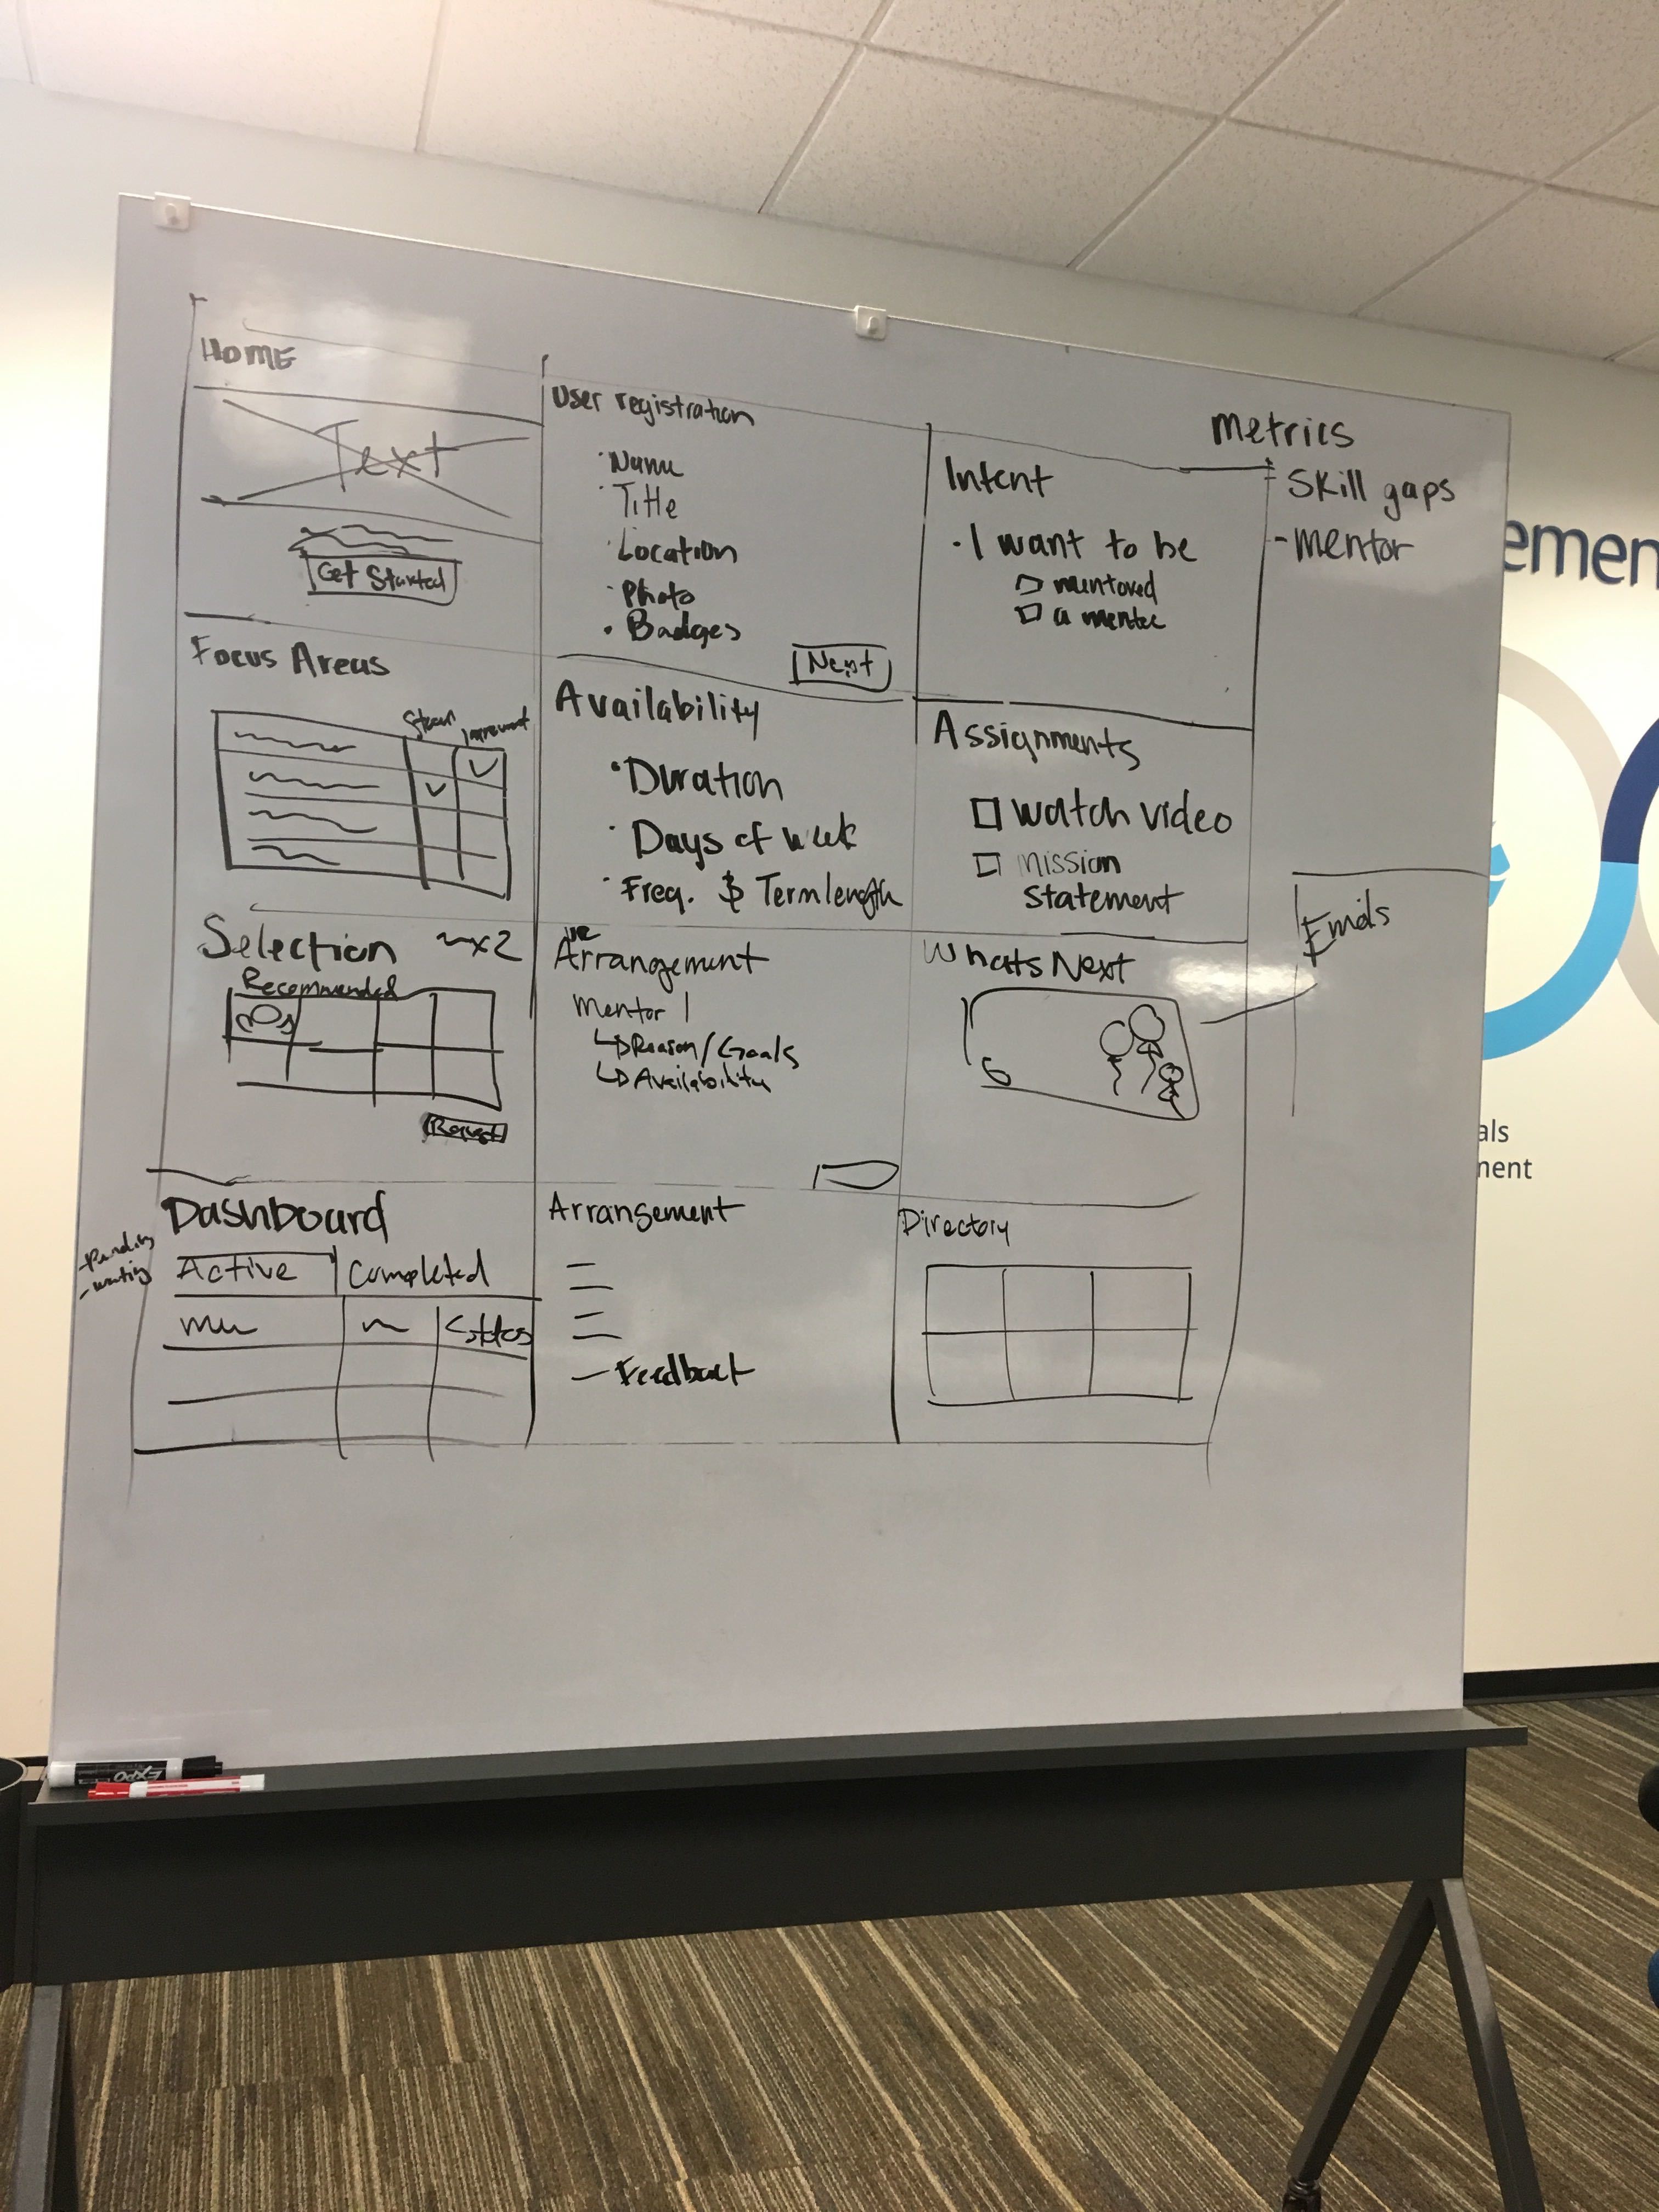 HOME
Text
Get Started
User registration
· Name
· Title
· Location
· Photo
· Badges
Next
Intent
· I want to be
mentored
a mentee
Metrics
- Skill gaps
- mentor
Focus Areas
Availability
· Duration
· Days of week
· Freq. & Term length
Assignments
watch video
mission
statement
Selection ~x2
Recommended
Request
Arrangement
Mentor 1
Reason/Goals
Availability
Whats Next
Emails
Dashboard
- Pending
- waiting
Active
Completed
Status
Arrangement
- Feedback
Directory
emen
als
ment
EXPO